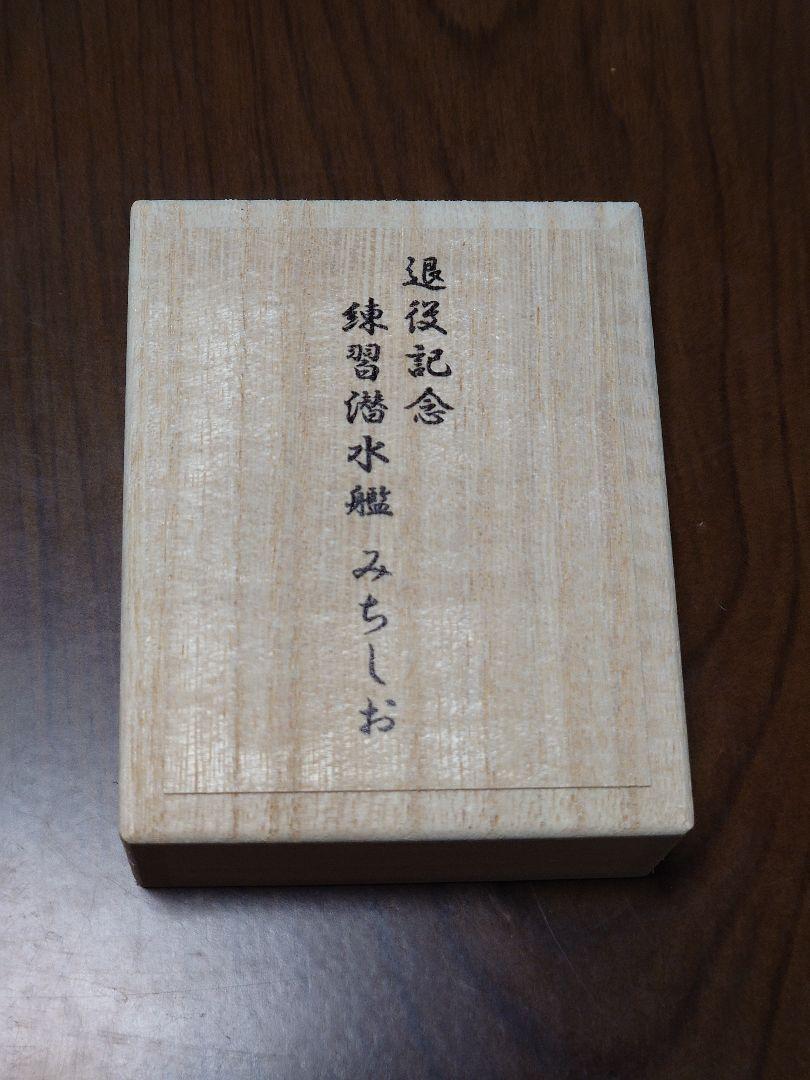 退役記念
練習潜水艦 みちしお